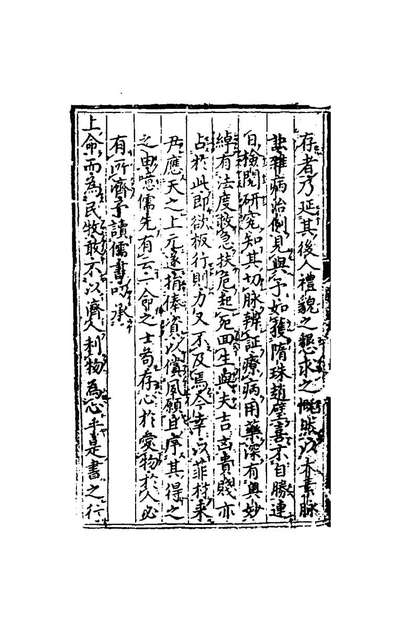 存者乃延其後人禮貌之懇求之慨然以太素脈
訣雜病治例見與予如獲隋珠趙璧喜不自勝連
日檢閱研究知其切脉辨証療病用藥深有奧妙
綽有法度救急扶危起死回生與夫吉凶貴賤亦
占於此即欲板行則力又不及焉今幸以菲材乘
乏應天之上元遂捐俸資以償夙願自序其得之
之由噫儒先有云一命之士苟存心於愛物於人必
有所濟予讀儒書叨承
上命而為民牧敢不以濟人利物為心乎是書之行